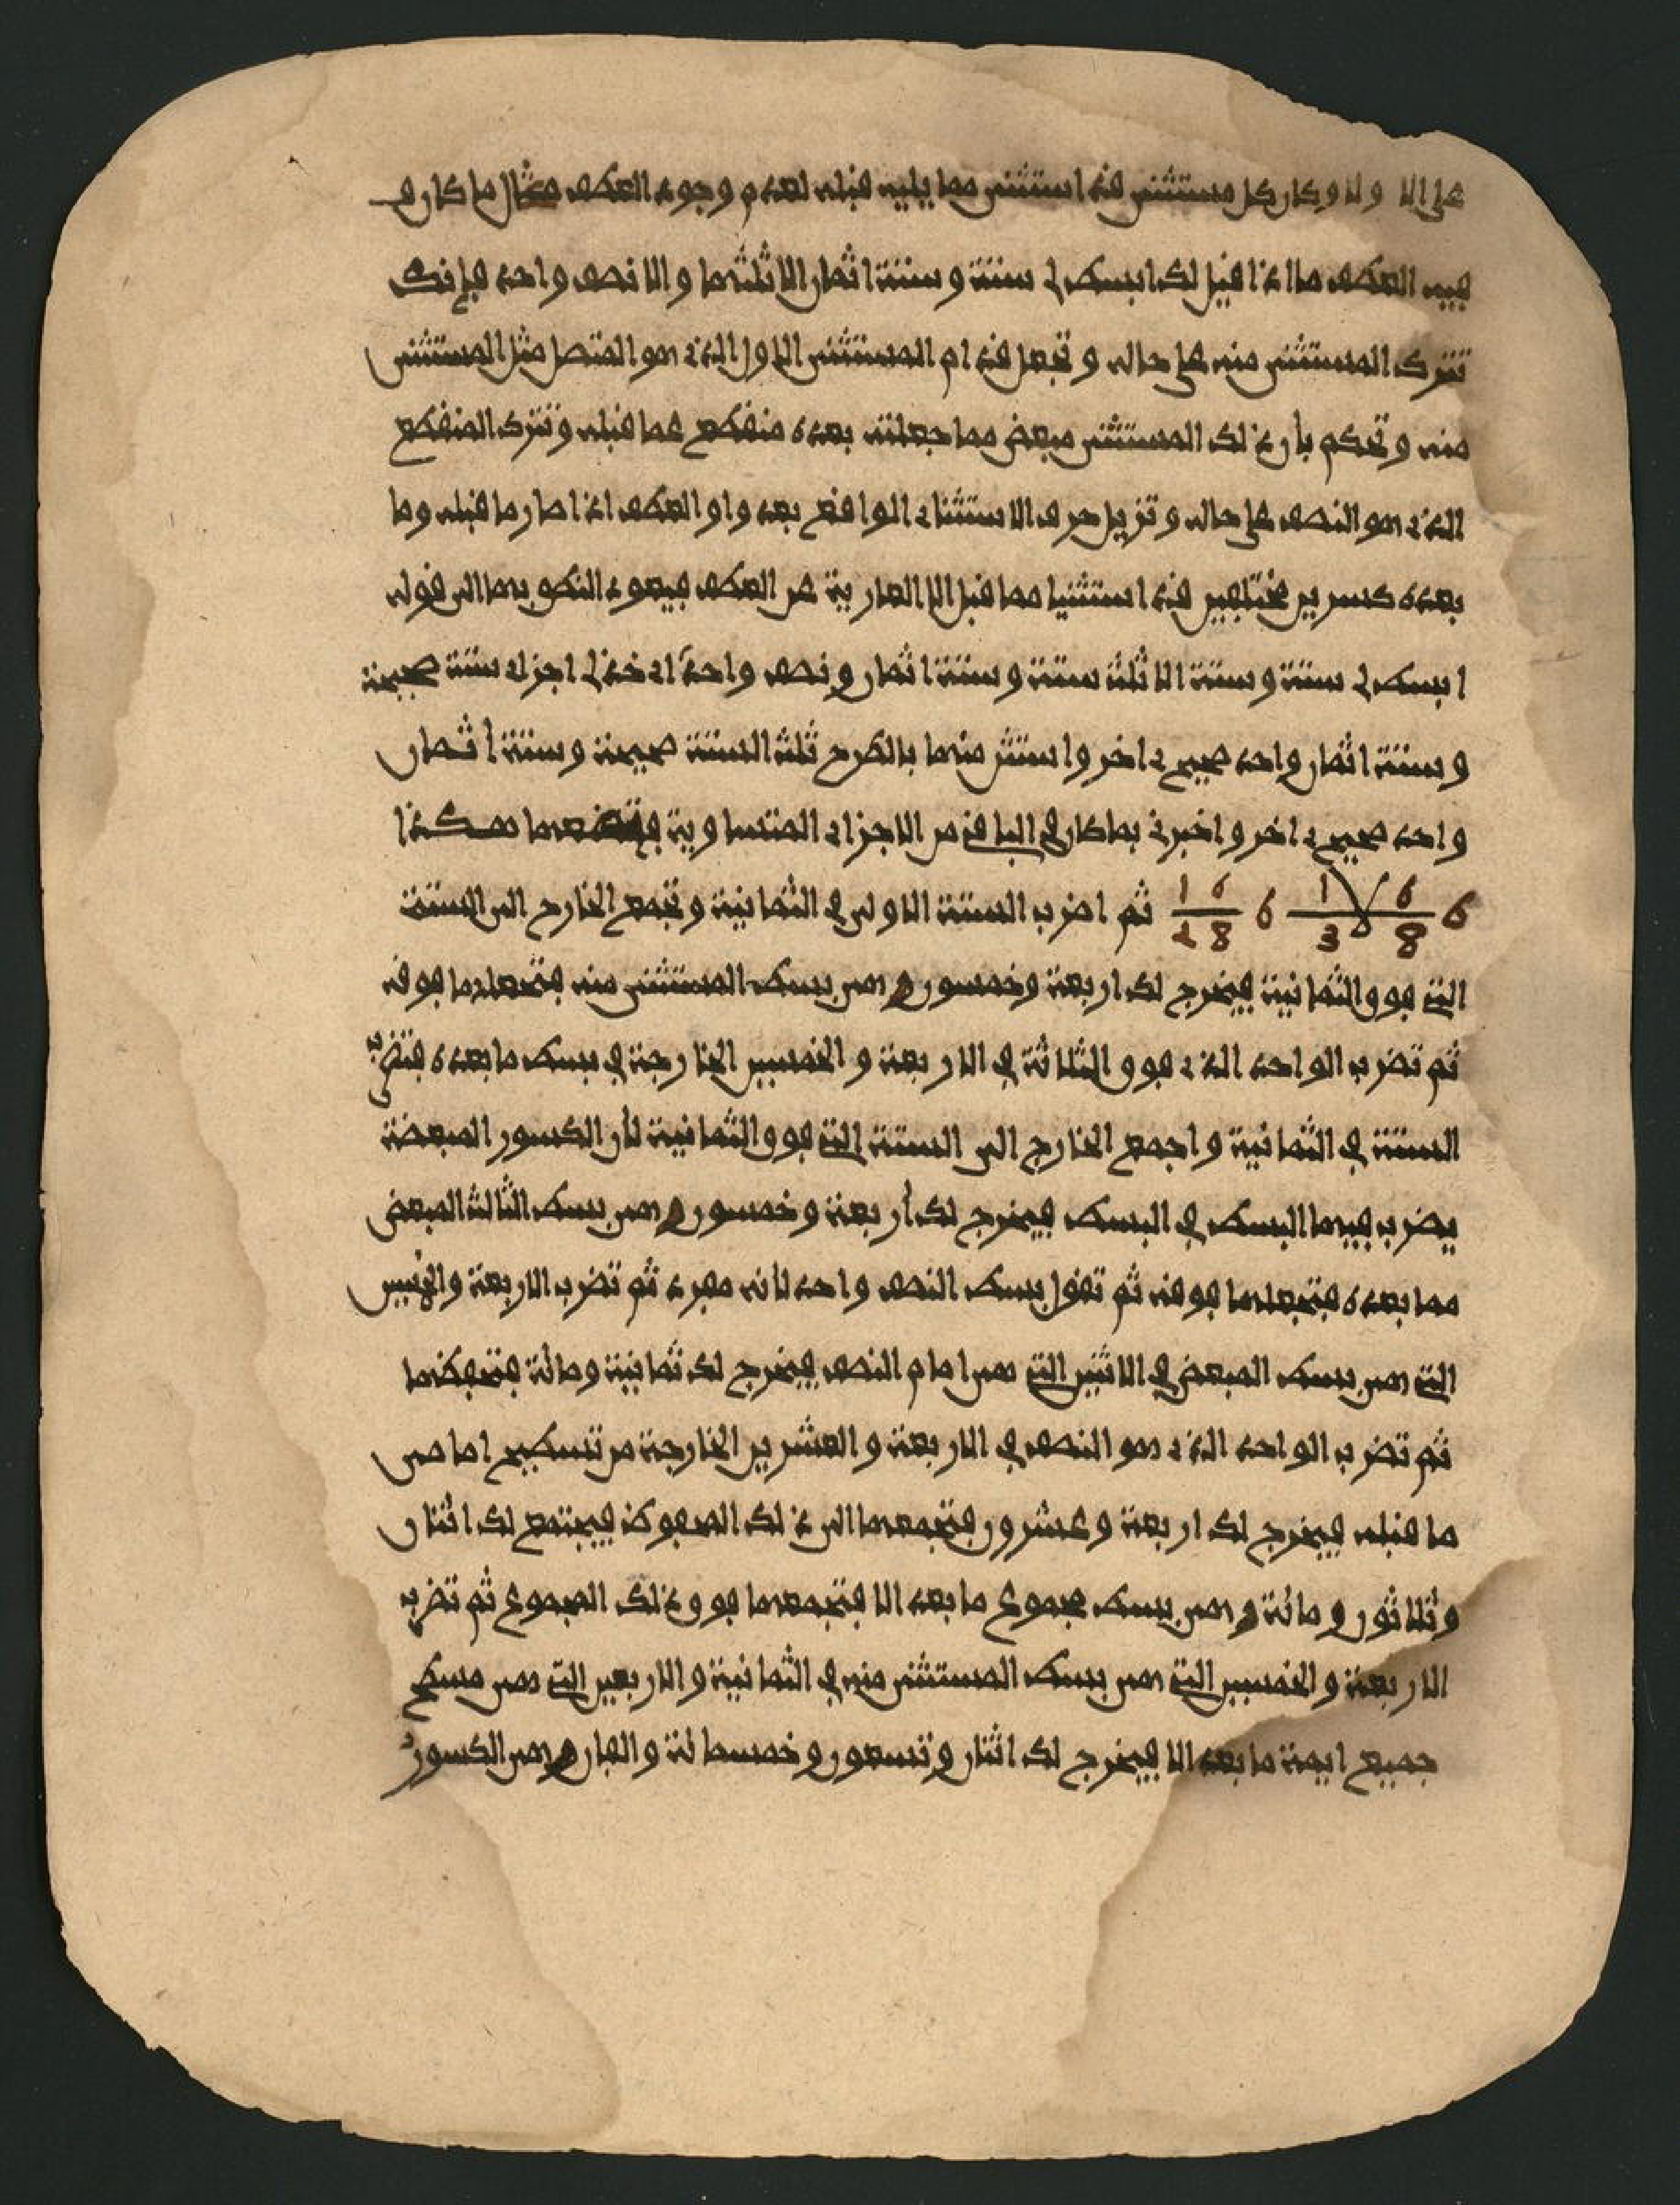 على الا ولا وكان كل مستثنى قد استثنى مما يليه قبله لعدم وجود العطف مثال ما كان
فيه العطف ما اذا قيل لك ابسط لي ستة وستة اثمان الا ثلثها والا نصف واحد فإنك
تترك المستثنى منه على حاله وتجعل قدام المستثنى الاول الذي هو المتصل مثل المستثنى
منه وتحكم بأن ذلك المستثنى مبعض مما جعلته بعده منقطع عما قبله وتترك المنقطع
الذي هو النصف على حاله وتزيل حرف الاستثناء الواقع بعد واو العطف اذا صار ما قبله وما
بعده كسرين مختلفين قد استثنيا مما قبل الا العارية عن العطف فيعود النطق بها الى قوله
ابسط لي ستة وستة الا ثلث ستة وستة اثمان ونصف واحد اي خذ لي اجزاء ستة صحيحة
وستة اثمان واحد صحيح ءاخر واستثن منها بالطرح ثلث الستة صحيحة وستة أثمان
واحد صحيح ءاخر واخبرني بما كان في الباقي من الاجزاء المتساوية هكذا
6 6/8 1/3 6 6/8 1/2 ثم اضرب الستة الاولى في الثمانية وتجمع الخارج الى الستة
التي فوق الثمانية فيخرج لك اربعة وخمسون وهي بسط المستثنى منه فتجعلها فوقه
ثم تضرب الواحد الذي فوق الثلاثة في الاربعة والخمسين الخارجة في بسط ما بعده فتضرب
الستة في الثمانية واجمع الخارج الى الستة التي فوق الثمانية لأن الكسور المبعضة
يضرب فيها البسط في البسط فيخرج لك أربعة وخمسون وهي بسط الثالث المبعض
مما بعده فتجعلها فوقه ثم تقول بسط النصف واحد لانه مفرد ثم تضرب الاربعة والخمسين
التي هي بسط المبعض في الاثنين التي هي امام النصف فيخرج لك ثمانية ومائة فتحفظها
ثم تضرب الواحد الذي هو النصف في الاربعة والعشرين الخارجة من تسطيح امامي
ما قبله فيخرج لك اربعة وعشرون فتجمعها الى ذلك المحفوظ فيجتمع لك اثنان
وثلاثون ومائة وهي بسط مجموع ما بعد الا فتجمعها فوق ذلك المجموع ثم تضرب
الاربعة والخمسين التي هي بسط المستثنى منه في الثمانية والاربعين التي هي مسطح
جميع ايمة ما بعد الا فيخرج لك اثنان وتسعون وخمسمائة والفان وهي الكسور